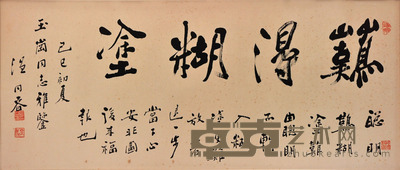 難得糊塗
聰明
難糊
塗難
由聰明
而轉
入糊
塗更難
放一著
退一步
當下心
安非圖
後來福
報也
己巳初夏
玉崗同志雅鑒